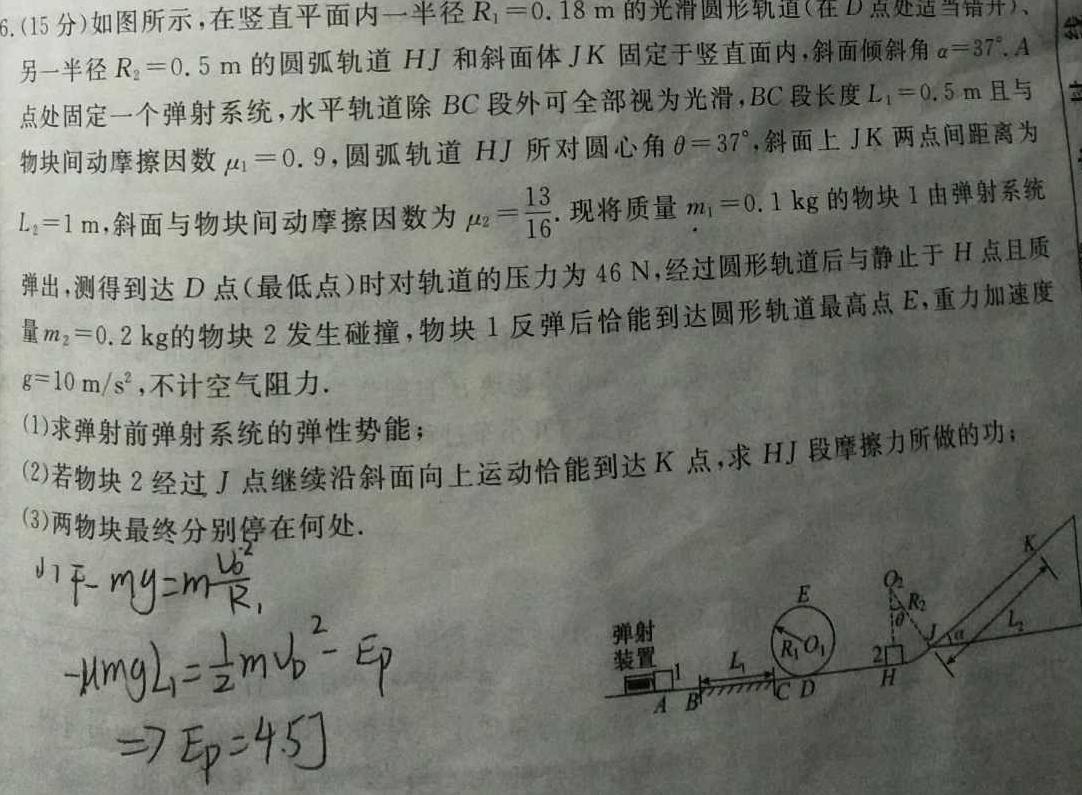 6.(15分)如图所示,在竖直平面内一半径 R₁=0.18 m 的光滑圆形轨道(在 D 点处适当错开)、
另一半径 R₂=0.5 m 的圆弧轨道 HJ 和斜面体 JK 固定于竖直面内,斜面倾斜角 α=37°.A
点处固定一个弹射系统,水平轨道除 BC 段外可全部视为光滑,BC 段长度 L₁=0.5 m 且与
物块间动摩擦因数 μ₁=0.9,圆弧轨道 HJ 所对圆心角 θ=37°,斜面上 JK 两点间距离为
L₂=1 m,斜面与物块间动摩擦因数为 μ₂=13/16.现将质量 m₁=0.1 kg 的物块 1 由弹射系统
弹出,测得到达 D 点(最低点)时对轨道的压力为 46 N,经过圆形轨道后与静止于 H 点且质
量 m₂=0.2 kg的物块 2 发生碰撞,物块 1 反弹后恰能到达圆形轨道最高点 E,重力加速度
g=10 m/s²,不计空气阻力.
(1)求弹射前弹射系统的弹性势能;
(2)若物块 2 经过 J 点继续沿斜面向上运动恰能到达 K 点,求 HJ 段摩擦力所做的功;
(3)两物块最终分别停在何处.
(1) F-mg=m v_D²/R₁
-μmgL₁=½mv_D²-Ep
=> Ep=4.5J
弹射
装置
1
A
B
L₁
C
D
E
R₁
O₁
2
H
O₂
R₂
θ
J
α
L₂
K